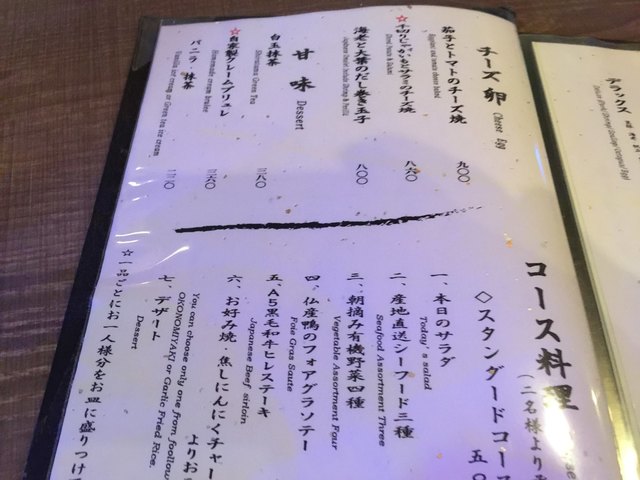 チーズ 卵 Cheese Egg
茄子とトマトのチーズ焼
Eggplant and tomato cheese baked
九〇〇
☆千切りじゃがいもと
のチーズ焼
八六〇
海老と大葉のだし巻き玉子
Japanese Omelet Include Shrimp & Perilla
八〇〇
甘味 Dessert
白玉抹茶
Shiratama Green Tea
三八〇
☆自家製クレームブリュレ
Homemade cream brulee
三六〇
バニラ・抹茶
Vanilla ice cream or Green tea ice cream
コース料理
(二名様より
◇スタンダードコース
五〇
一、本日のサラダ
Today's salad
二、産地直送シーフード三種
Seafood Assortment Three
三、朝摘み有機野菜四種
Vegetable Assortment Four
四、仏産鴨のフォアグラソテー
Foie Gras Saute
五、A5黒毛和牛ヒレステーキ
Japanese Beef sirloin
六、お好み焼・焦しにんにくチャー
よりお
You can choose only one from foollow
OKONOMIYAKI or Garlic Fried Rice.
七、デザート
Dessert
☆一品ごとにお一人様分をお皿に盛りつけて
デラックス